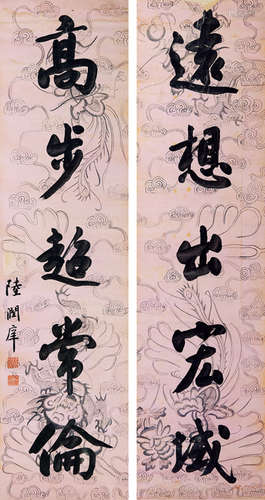 遠想出宏域
高步超常倫
陸潤庠